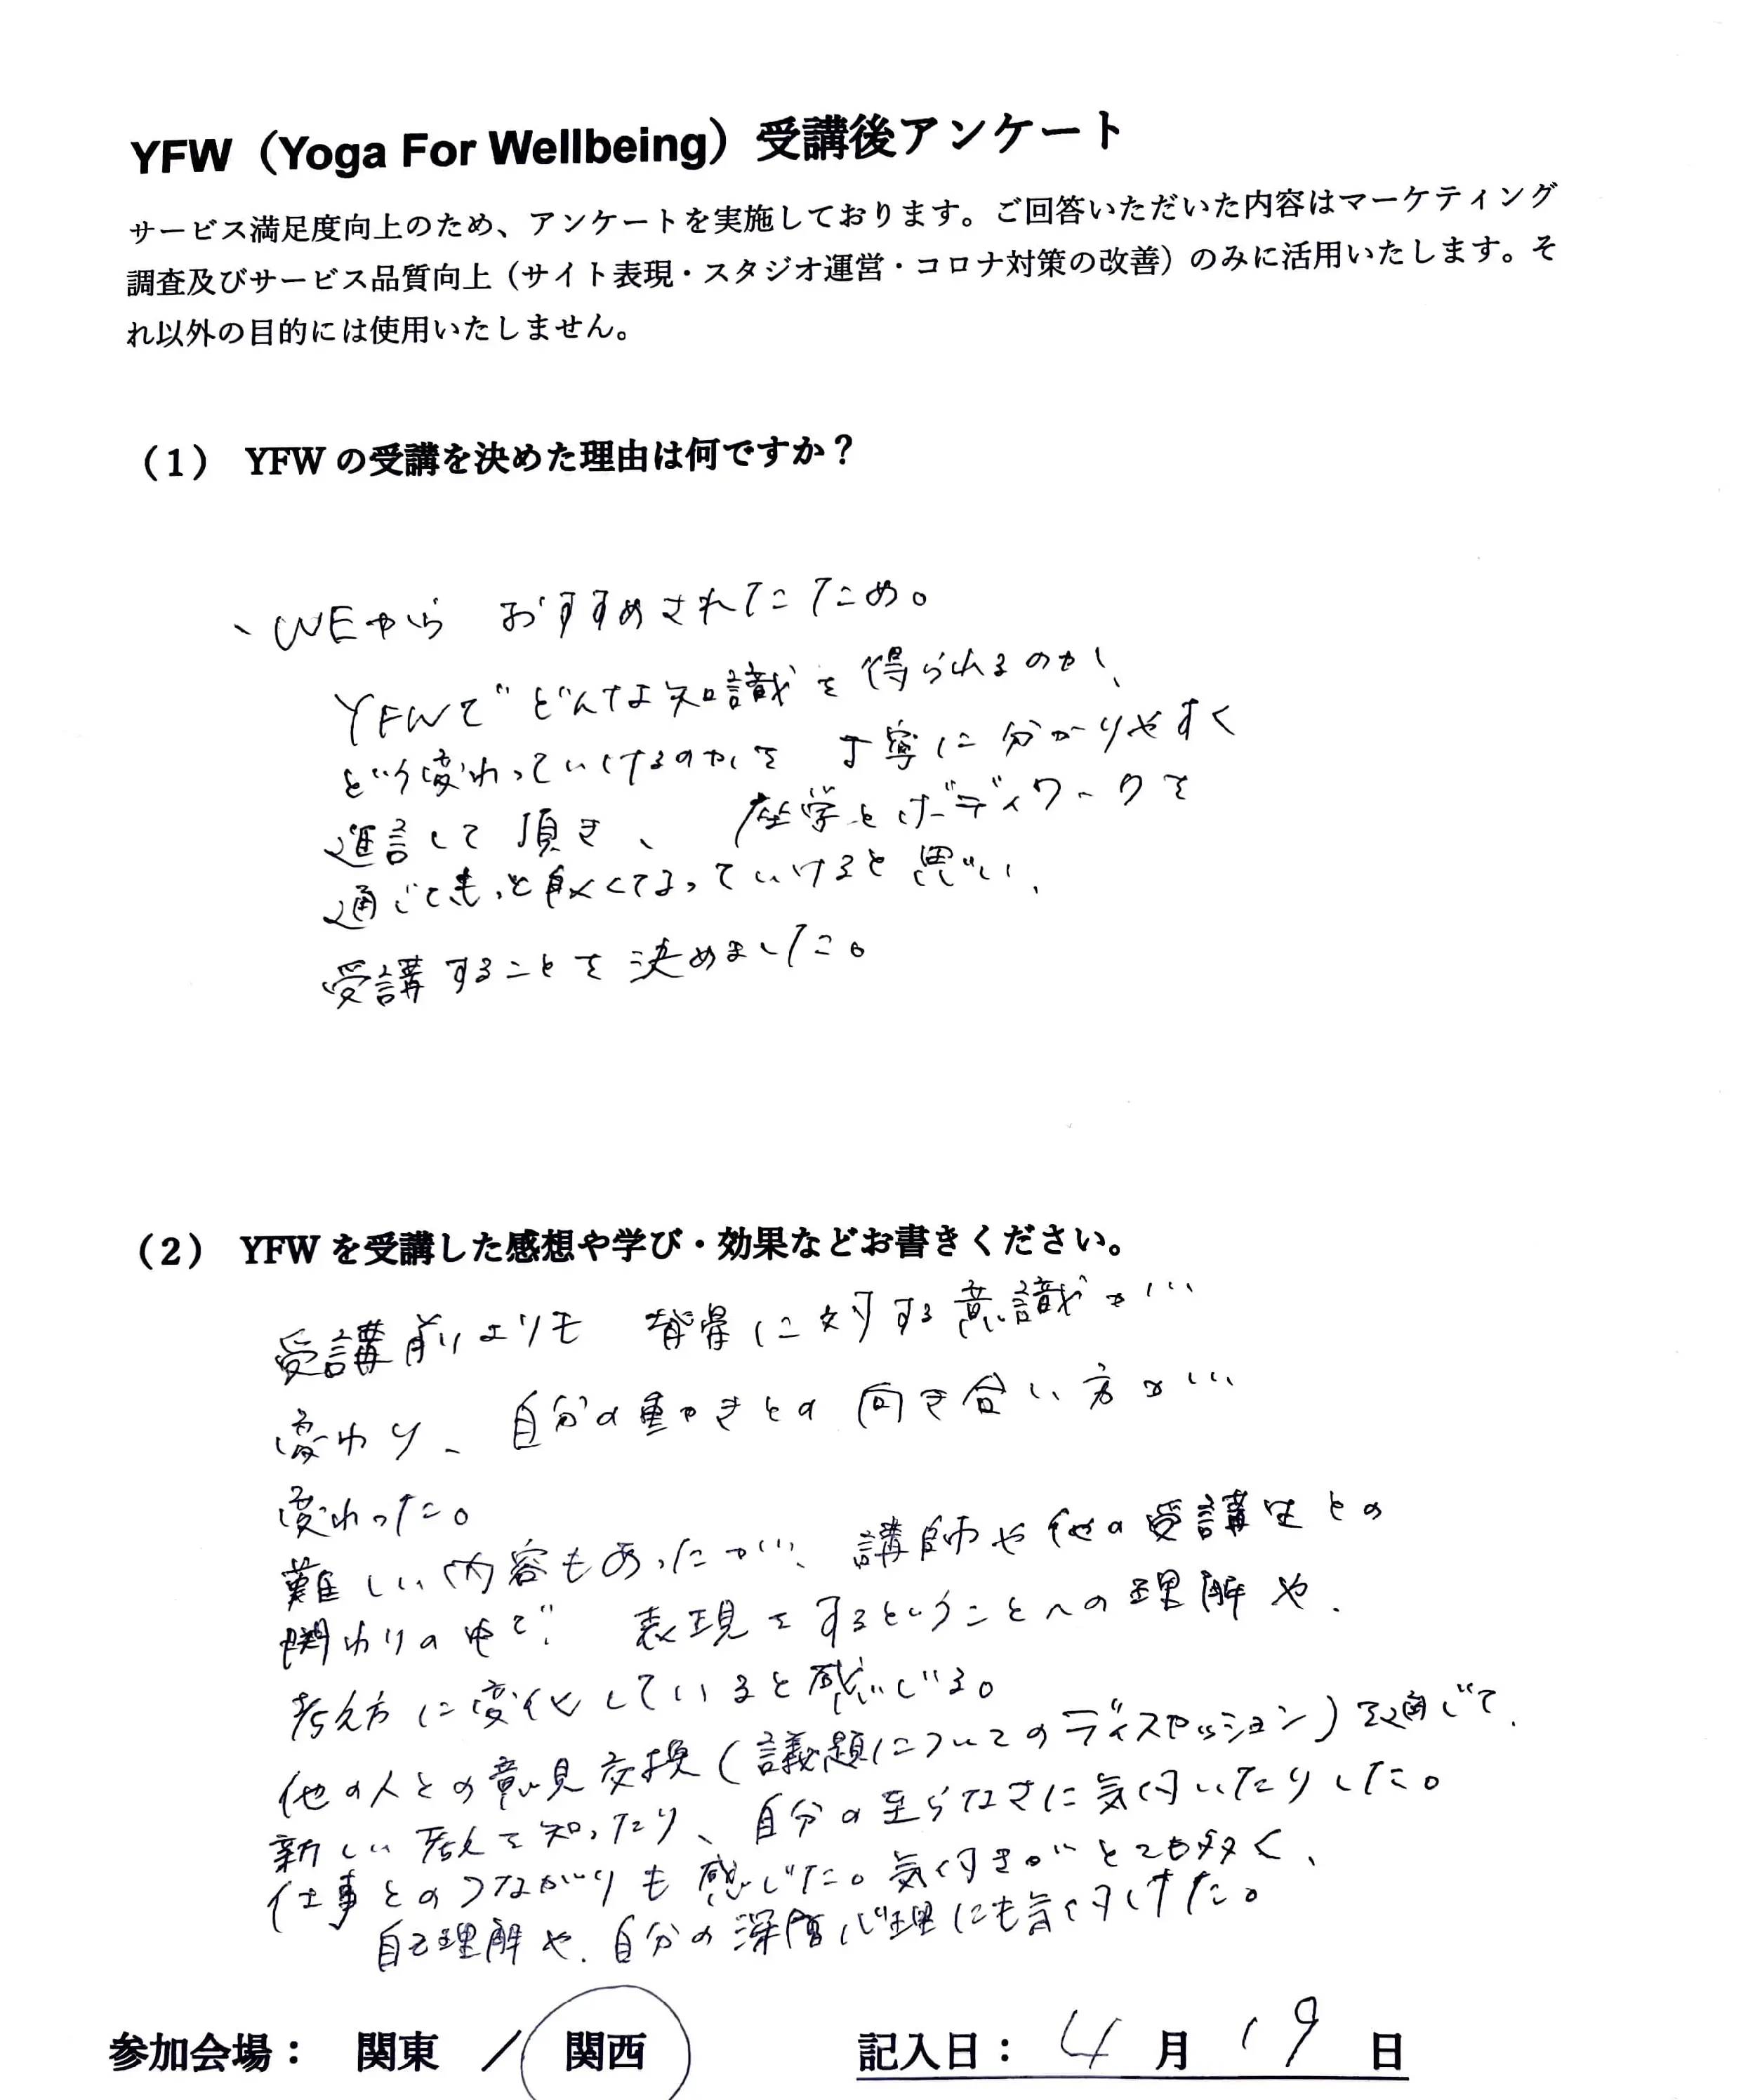 YFW（Yoga For Wellbeing）受講後アンケート
サービス満足度向上のため、アンケートを実施しております。ご回答いただいた内容はマーケティング
調査及びサービス品質向上（サイト表現・スタジオ運営・コロナ対策の改善）のみに活用いたします。そ
れ以外の目的には使用いたしません。
（1） YFW の受講を決めた理由は何ですか？
、WEから おすすめされたため。
YFWでどんな知識を得られるのか、
どう変わっていけるのかを 丁寧に分かりやすく
進言して頂き、座学とボディワークを
通じてもっと良くなっていけると思い、
受講することを決めました。
（2） YFW を受講した感想や学び・効果などお書きください。
受講前よりも 背骨に対する意識が
変わり、自分の動きとの向き合い方が
変わった。
難しい内容もあったが、講師や他の受講生との
関わりの中で、表現をするということへの理解や、
考え方に変化していると感じる。
他の人との意見交換（議題についてのディスカッション）を通じて、
新しい考えを知ったり、自分の至らなさに気付いたりした。
仕事とのつながりも感じた。気付きがとても多く、
自己理解や、自分の深層心理にも気付けた。
参加会場： 関東 ／ 関西
記入日： 4 月 19 日